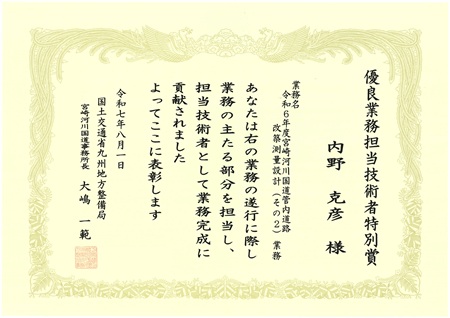 優良業務担当技術者特別賞
内野 克彦 様
業務名
令和6年度宮崎河川国道管内道路
改築測量設計(その2)業務
あなたは右の業務の遂行に際し
業務の主たる部分を担当し、
担当技術者として業務完成に
貢献されました
よってここに表彰します
令和七年八月一日
国土交通省九州地方整備局
宮崎河川国道事務所長 大嶋 一範